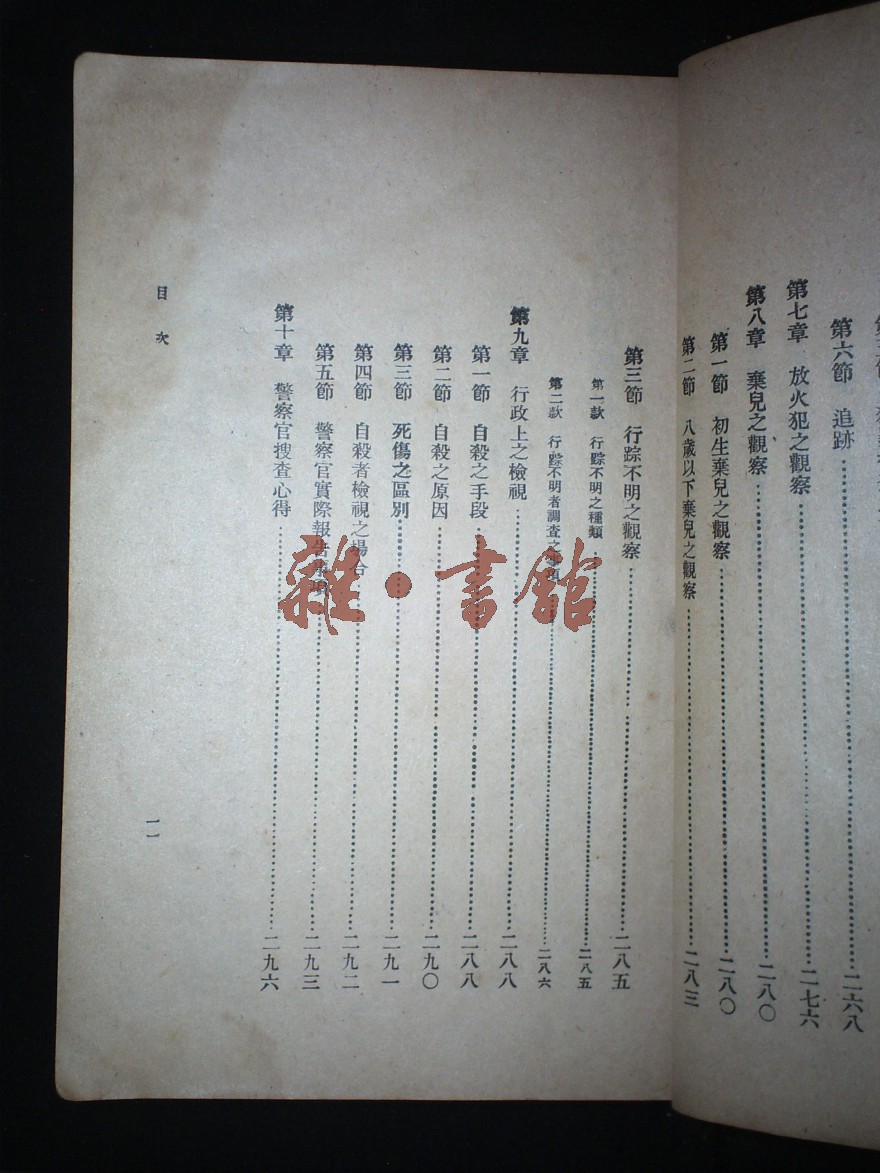 第六節　追跡……二六八
第七章　放火犯之觀察……二七六
第八章　棄兒之觀察……二八〇
第一節　初生棄兒之觀察……二八〇
第二節　八歲以下棄兒之觀察……二八三
第三節　行踪不明之觀察……二八五
第一款　行踪不明之種類……二八五
第二款　行踪不明者調查之事項……二八六
第九章　行政上之檢視……二八八
第一節　自殺之手段……二八八
第二節　自殺之原因……二九〇
第三節　死傷之區別……二九一
第四節　自殺者檢視之場合……二九二
第五節　警察官實際報告事項……二九三
第十章　警察官搜查心得……二九六
目次
一一
雜·書館